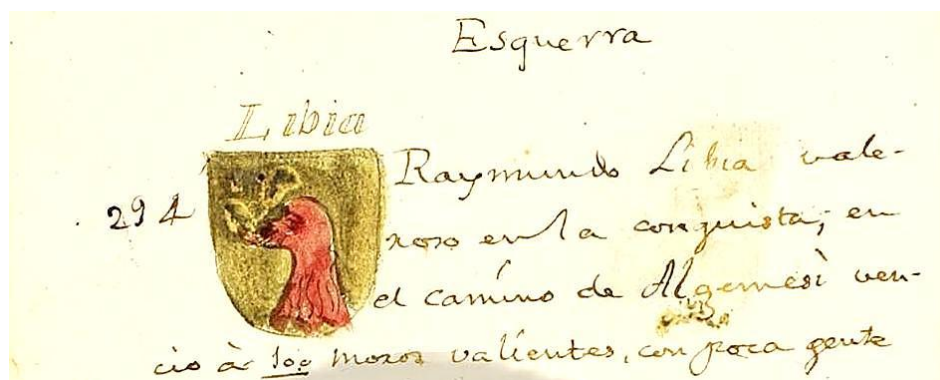 Esquerra
Libia
294
Raymundo Libia vale-
roso en la conquista; en
el camino de Algemesì ven-
cio à 100 moros valientes, con poca gente